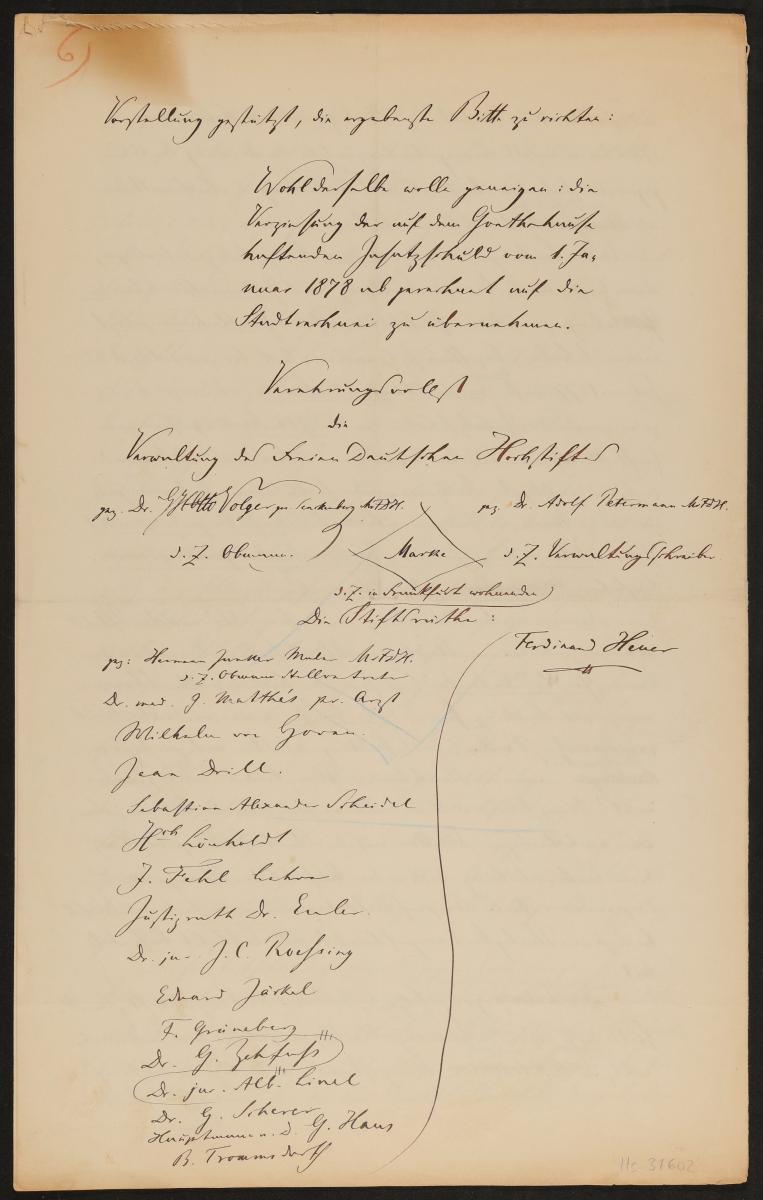 6)
Vorstellung gestützt, die ergebenste Bitte zu richten:
Wohlderselbe wolle geneigen: die
Verzinsung der auf dem Goethehause
haftenden Insatzschuld vom 1. Ja-
nuar 1878 ab gerechnet auf die
Stadtrechnei zu übernehmen.
Verehrungsvollst
die
Verwaltung des Freien Deutschen Hochstiftes
gez. Dr. GHOtto Volger gen. Senckenberg MFDH.
gez. Dr. Adolf Petermann MFDH.
d. Z. Obmann.
Marke
d. Z. Verwaltungsschreiber
d. Z. in Frankfurt wohnenden
Die Stiftsräthe:
Ferdinand Heuer
gez: Herman Junker Maler MFDH.
d. Z. Obmann Stellvertreter
Dr. med. J. Matthes pr. Arzt
Wilhelm von
Jean Drill.
Sebastian Alexander Scheidel
Hrch Lönholdt
J. Fehl Lehrer
Justizrath Dr. Euler.
Dr. jur. J. C. Roessing
Eduard Jäckel
F. Grüneberg
Dr. G. Zehfuss
Dr. jur. Alb. Linel
Dr. G. Scherer
Hauptmann a. D. G. Haus
B. Trommsdorff
Hs-31602